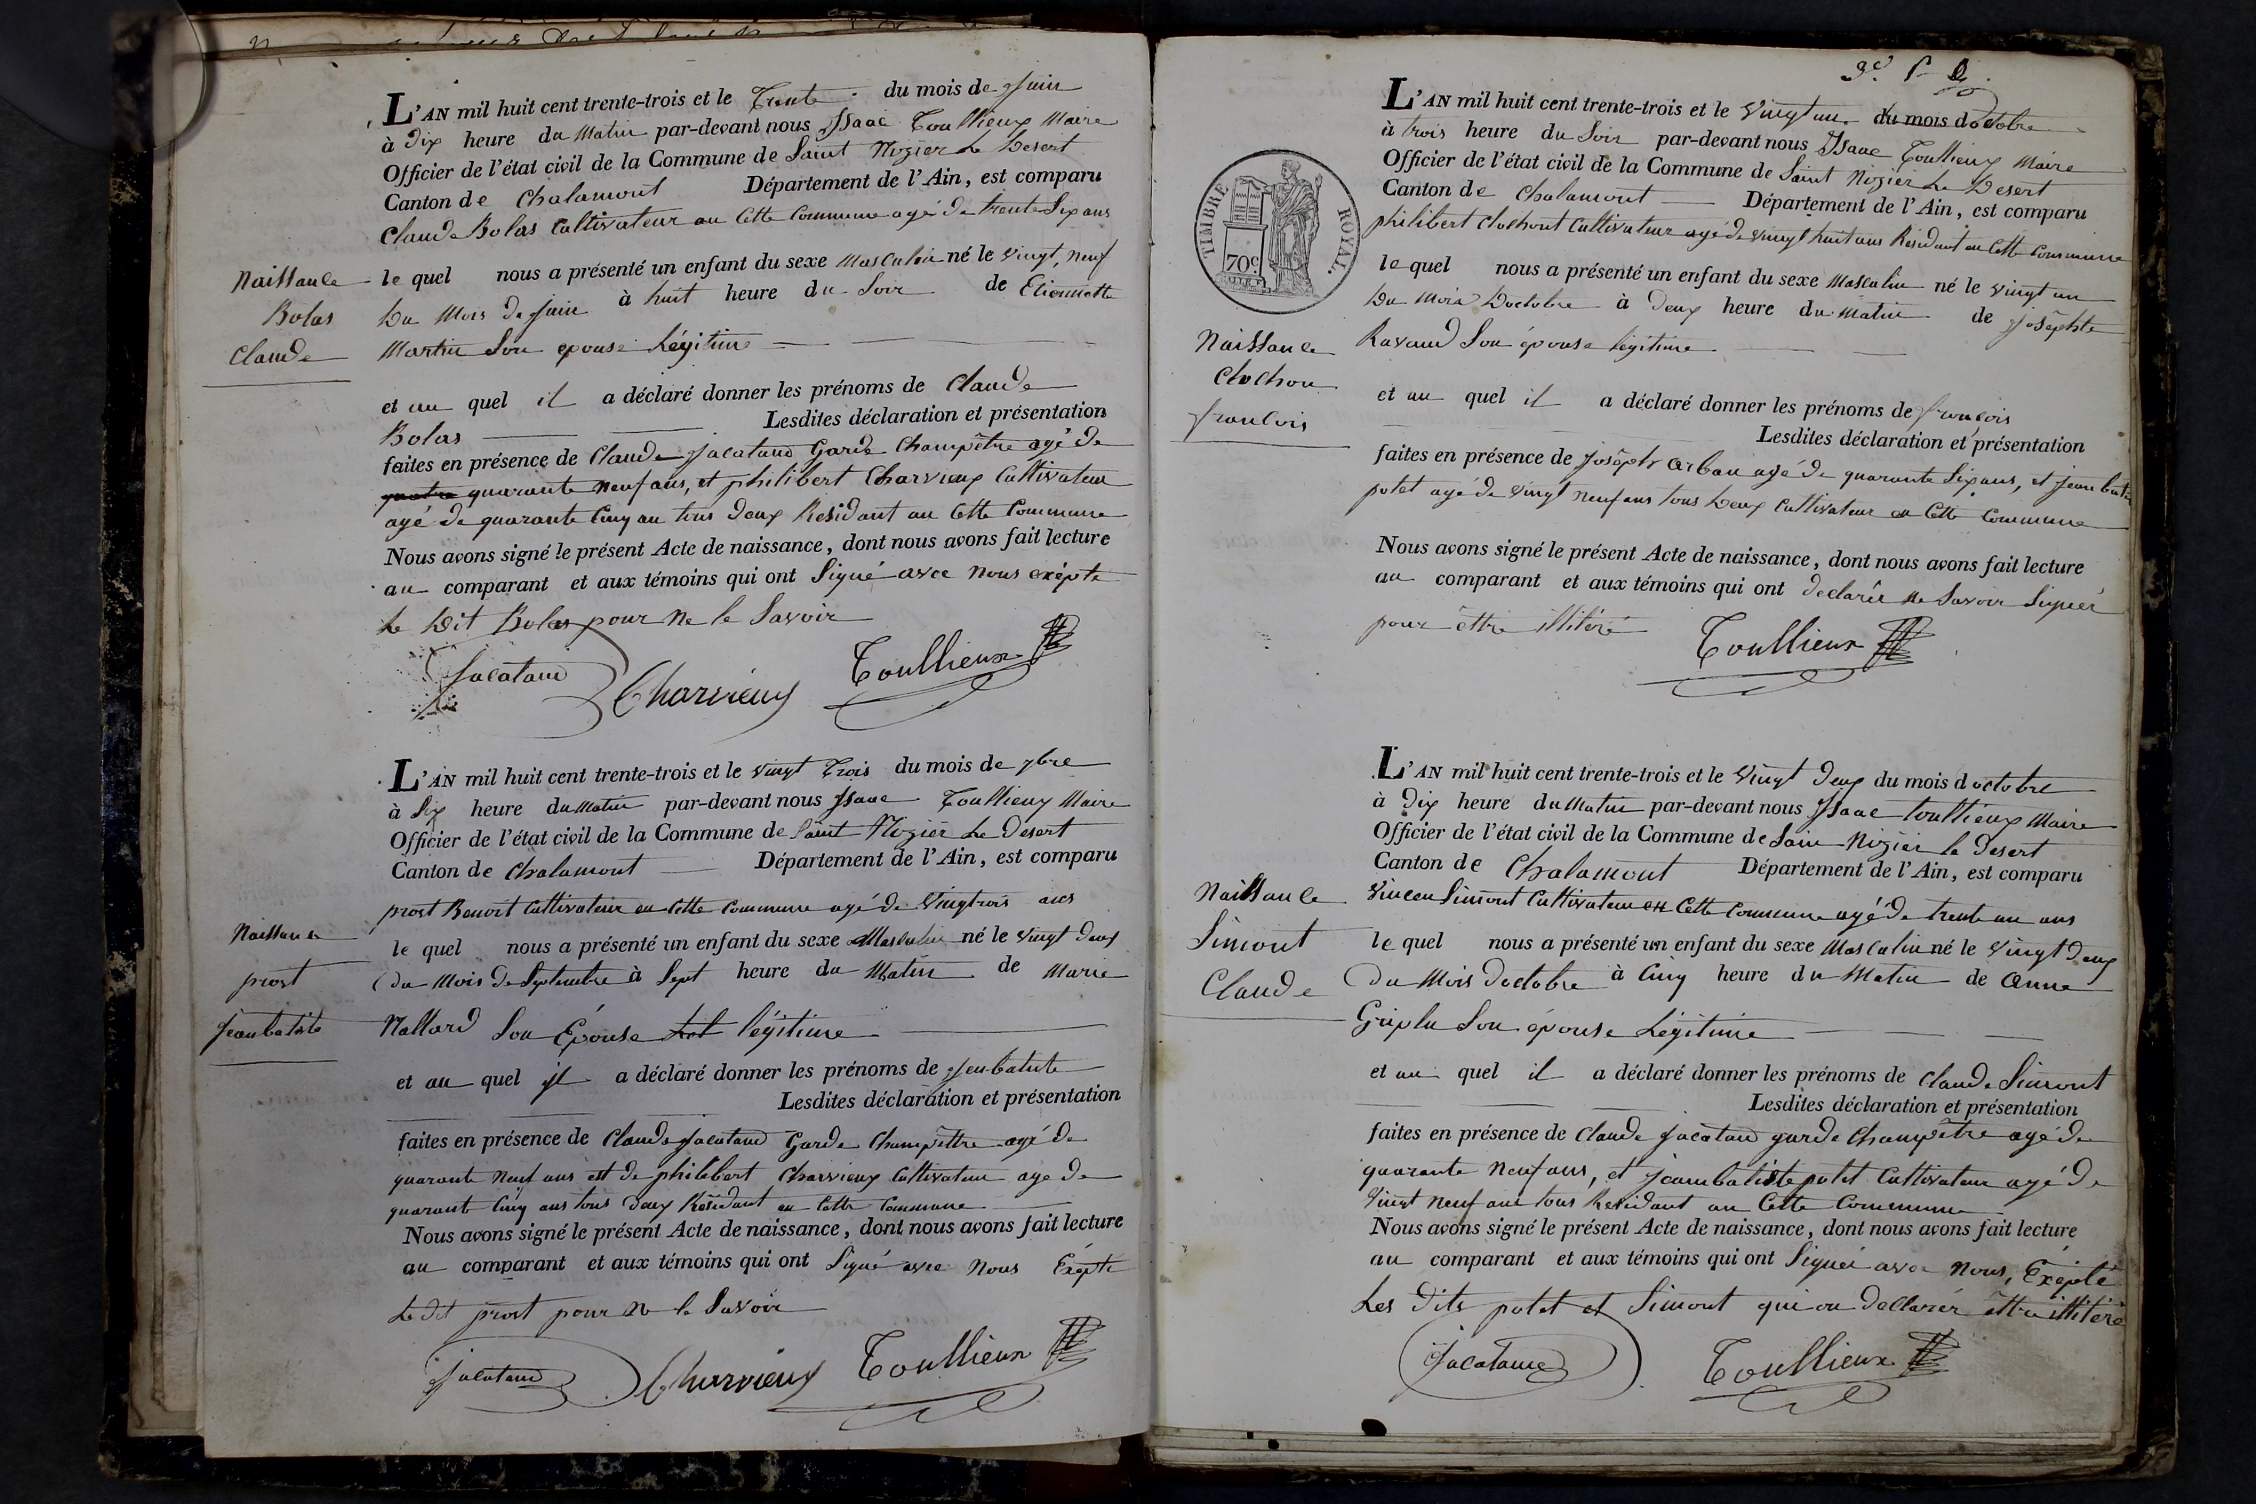 L'AN mil huit cent trente-trois et le Trente du mois de Juin
à Dix heure du Matin par-devant nous Isaac Toullieux Maire
Officier de l'état civil de la Commune de Saint Nizier Le Desert
Canton de Chalamont Département de l'Ain, est comparu
Claude Bolas Cultivateur au Cette Commune agé de trente Six ans
Naissance
le quel nous a présenté un enfant du sexe Masculin né le vingt, neuf
Bolas
Du Mois de Juin à huit heure du Soir de Etiennette
Claude
Martin Son epouse Légitime
et au quel il a déclaré donner les prénoms de Claude
Bolas Lesdites déclaration et présentation
faites en présence de Claude Jacatand Garde Champêtre agé de
quatre quarante neuf ans, et philibert Charvieux Cultivateur
agé de quarante Cinq an tous deux Residant au Cette Commune
Nous avons signé le présent Acte de naissance, dont nous avons fait lecture
au comparant et aux témoins qui ont Signé avec Nous exépte
Le Dit Bolas pour Ne le Savoir
Jacatand Charvieux Toullieux
L'AN mil huit cent trente-trois et le vingt Trois du mois de 7bre
à Six heure du Matin par-devant nous Isaac Toullieux Maire
Officier de l'état civil de la Commune de Saint Nizier Le Desert
Canton de Chalamont Département de l'Ain, est comparu
prost Benoit Cultivateur en Cette Commune agé de Vingtrois ans
Naissance
le quel nous a présenté un enfant du sexe Masculin né le vingt deux
prost
du Mois de Septembre à Sept heure du Matin de Marie
Jeanbatiste
Mallard Son Épouse légitime
et au quel il a déclaré donner les prénoms de Jeu-batiste
Lesdites déclaration et présentation
faites en présence de Claude Jacatand Garde Champêttre agé de
quarante neuf ans et de philibert Charvieux Cultivateur age de
quarante Cinq ans tous deux Résidant en Cette Commune
Nous avons signé le présent Acte de naissance, dont nous avons fait lecture
au comparant et aux témoins qui ont Signé avec Nous Éxépté
Le dit prost pour Ne le Savoir
Jacatand Charvieux Toullieux
L'AN mil huit cent trente-trois et le Vingt un du mois doctobre
à trois heure du Soir par-devant nous Isaac Toullieux Maire
Officier de l'état civil de la Commune de Saint Nizier Le Desert
Canton de Chalamont Département de l'Ain, est comparu
TIMBRE ROYAL.
70c
philibert Clochont Cultivateur agé de vingt huit ans Résidant au Cette Commune
le quel nous a présenté un enfant du sexe Masculin né le vingt un
Du Mois Doctobre à Deux heure du Matin de Josêphte
Naissance
Ravaud Son épouse légitime
Clochon
francois
et au quel il a déclaré donner les prénoms de francois
Lesdites déclaration et présentation
faites en présence de Josêph Arban agé de quarante Six ans, et Jean batis
potet agé de vingt neuf ans tous Deux Cultivateur en Cette Commune
Nous avons signé le présent Acte de naissance, dont nous avons fait lecture
au comparant et aux témoins qui ont declarée ne Savoir Signér
pour êttre illitéré
Toullieux
L'AN mil huit cent trente-trois et le Vingt deux du mois d octobre
à Dix heure du Matin par-devant nous Isaac Toullieux Maire
Officier de l'état civil de la Commune de Sain Nizier le Desert
Canton de Chalamont Département de l'Ain, est comparu
Naissance
Vincen Simont Cultivateur en Cette Commune agé de trente un ans
Simont
le quel nous a présenté un enfant du sexe Masculin né le Vingt deux
Claude
Du Mois doctobre à Cinq heure du Matin de Anne
Son épouse Légitime
et au quel il a déclaré donner les prénoms de Claude Simont
Lesdites déclaration et présentation
faites en présence de Claude Jacatand garde Champêtre agé de
quarante Neuf ans, et Jeambatiste potet Cultivateur agé de
Vingt neuf ans tous Residant au Cette Commune
Nous avons signé le présent Acte de naissance, dont nous avons fait lecture
au comparant et aux témoins qui ont Signéé avec Nous, Éxépté
Les Dits potet et Simont qui on déclarér êttre illitéré
Jacatand Toullieux